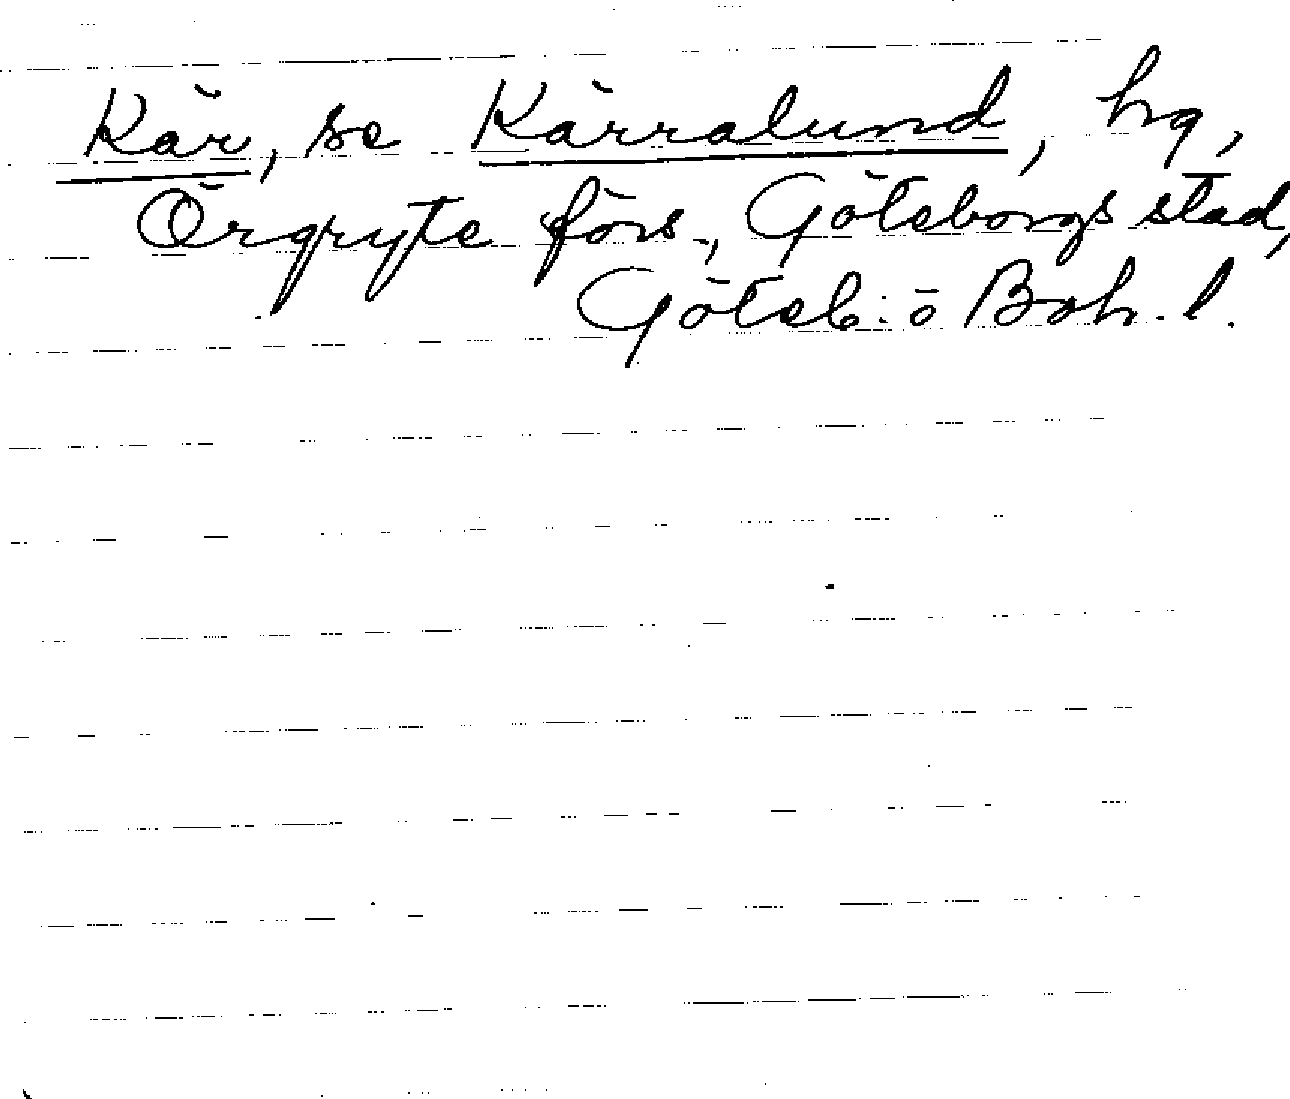 Kär, se Kärralund, hg,
Örgryte förs., Göteborgs stad,
Göteb. o Boh. l.